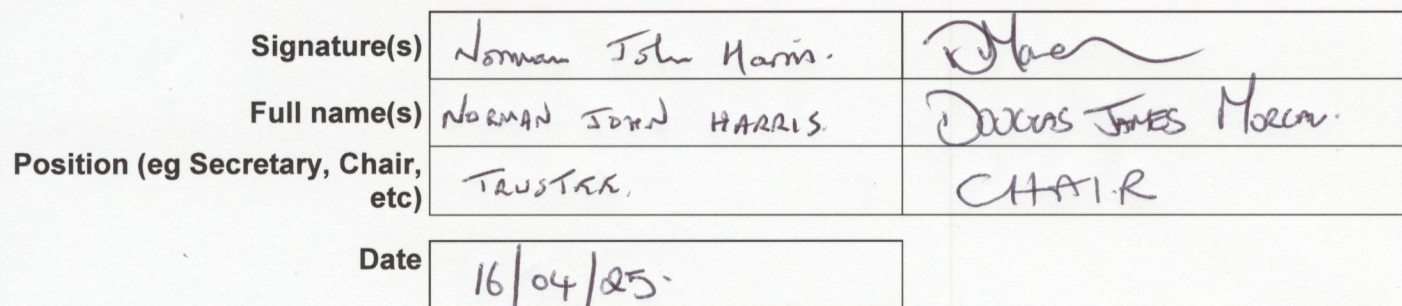 Signature(s) Norman John Harris.
Full name(s) NORMAN JOHN HARRIS. DOUGLAS JAMES MORGAN.
Position (eg Secretary, Chair,
etc) TRUSTEE. CHAIR
Date 16/04/25.